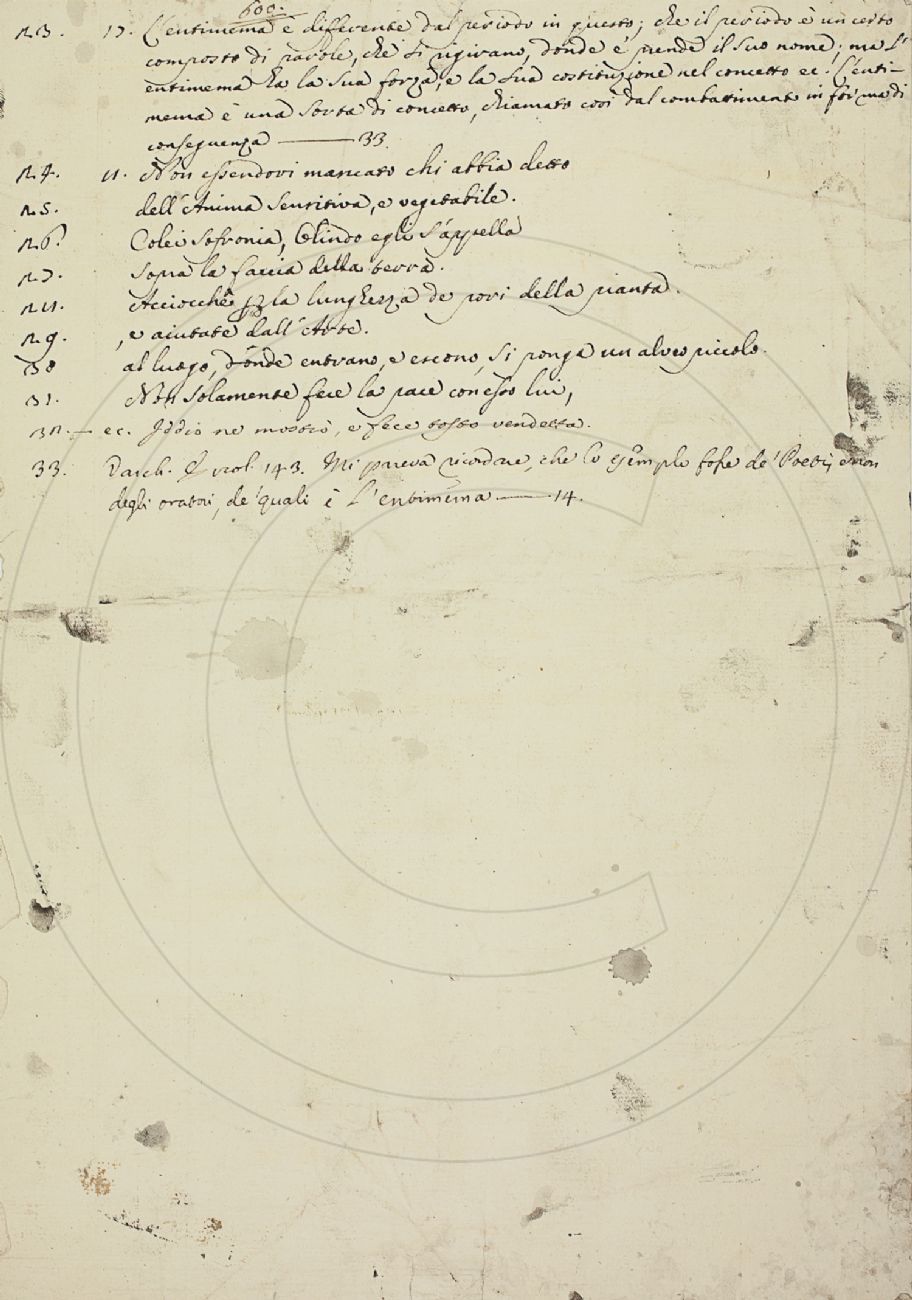 600.
23. 17. L'entimema è differente dal periodo in questo; che il periodo è un certo
composto di parole, che si rigirano, donde e' prende il suo nome; ma l'
entimema ha la sua forza, e la sua costituzione nel concetto ec. L'enti-
mema è una sorta di concetto, chiamato così dal combattimento in forma di
conseguenza —— 33.
24. Non essendovi mancato chi abbia detto
25. dell'Anima sensitiva, e vegetabile.
26. Colei Sofronia, Olindo egli s'appella
27. sopra la faccia della terra.
Acciocchè la lunghezza de pori della pianta.
29. , e aiutate dall'Arte.
30 al luogo, donde entrano, e escono, si ponga un alveo piccolo.
31. Non solamente fece la pace con esso lui,
32. — ec. Iddio ne mostrò, e fece tosto vendetta.
33. 143. Mi pareva ricordare, che lo esemplo fosse de' Poeti, e non
degli oratori, de' quali è l'entimema —— 14.